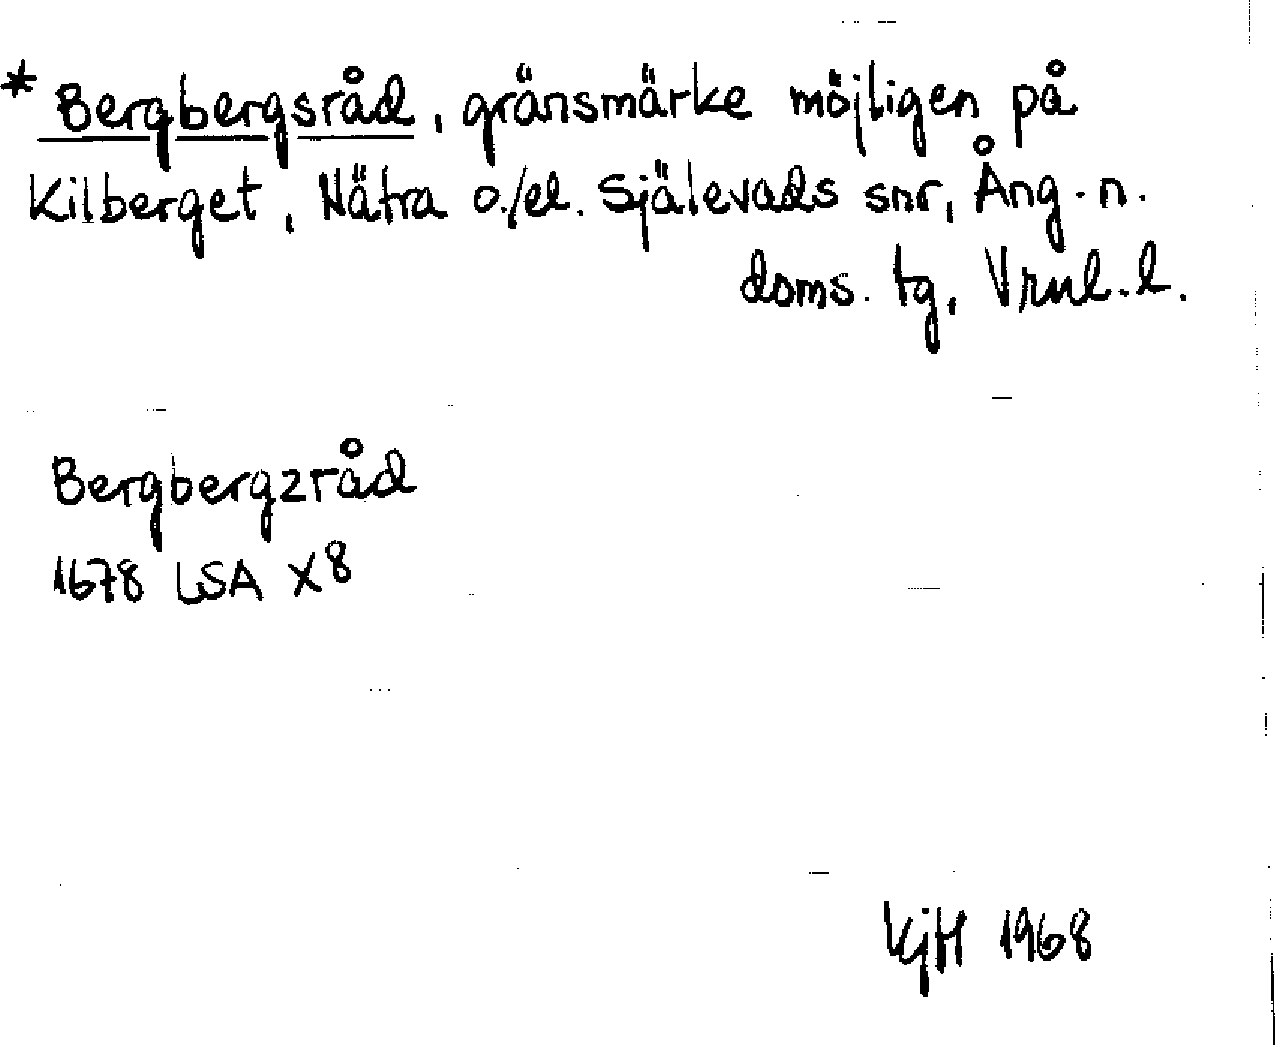 * Bergbergsråd, gränsmärke möjligen på
Kilberget, Nätra o./el. Själevads snr, Ång. n.
doms. tg, Vrnl. l.
Bergbergzråd
1678 LSA X8
KjH 1968